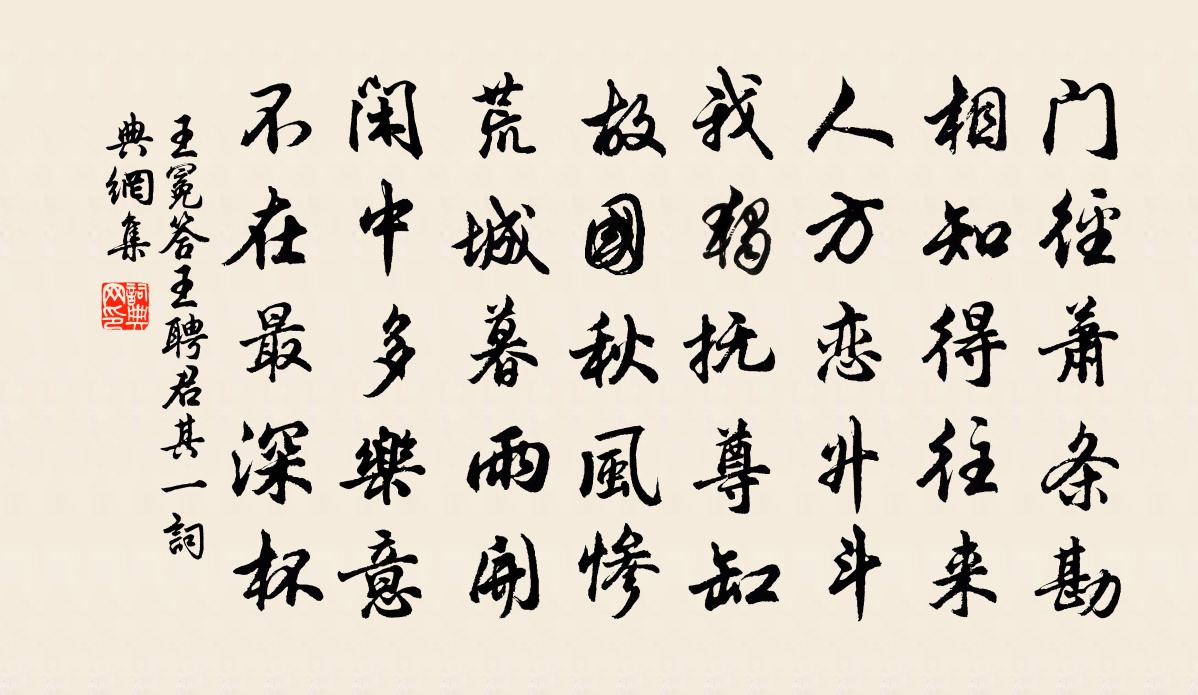 门徑蕭条勘
相知得往来
人方恋升斗
我独抚尊缶
故國秋風惨
荒城暮雨開
闲中多樂意
不在最深杯
王冕答王聘君其一詞
典網集
詞典網印